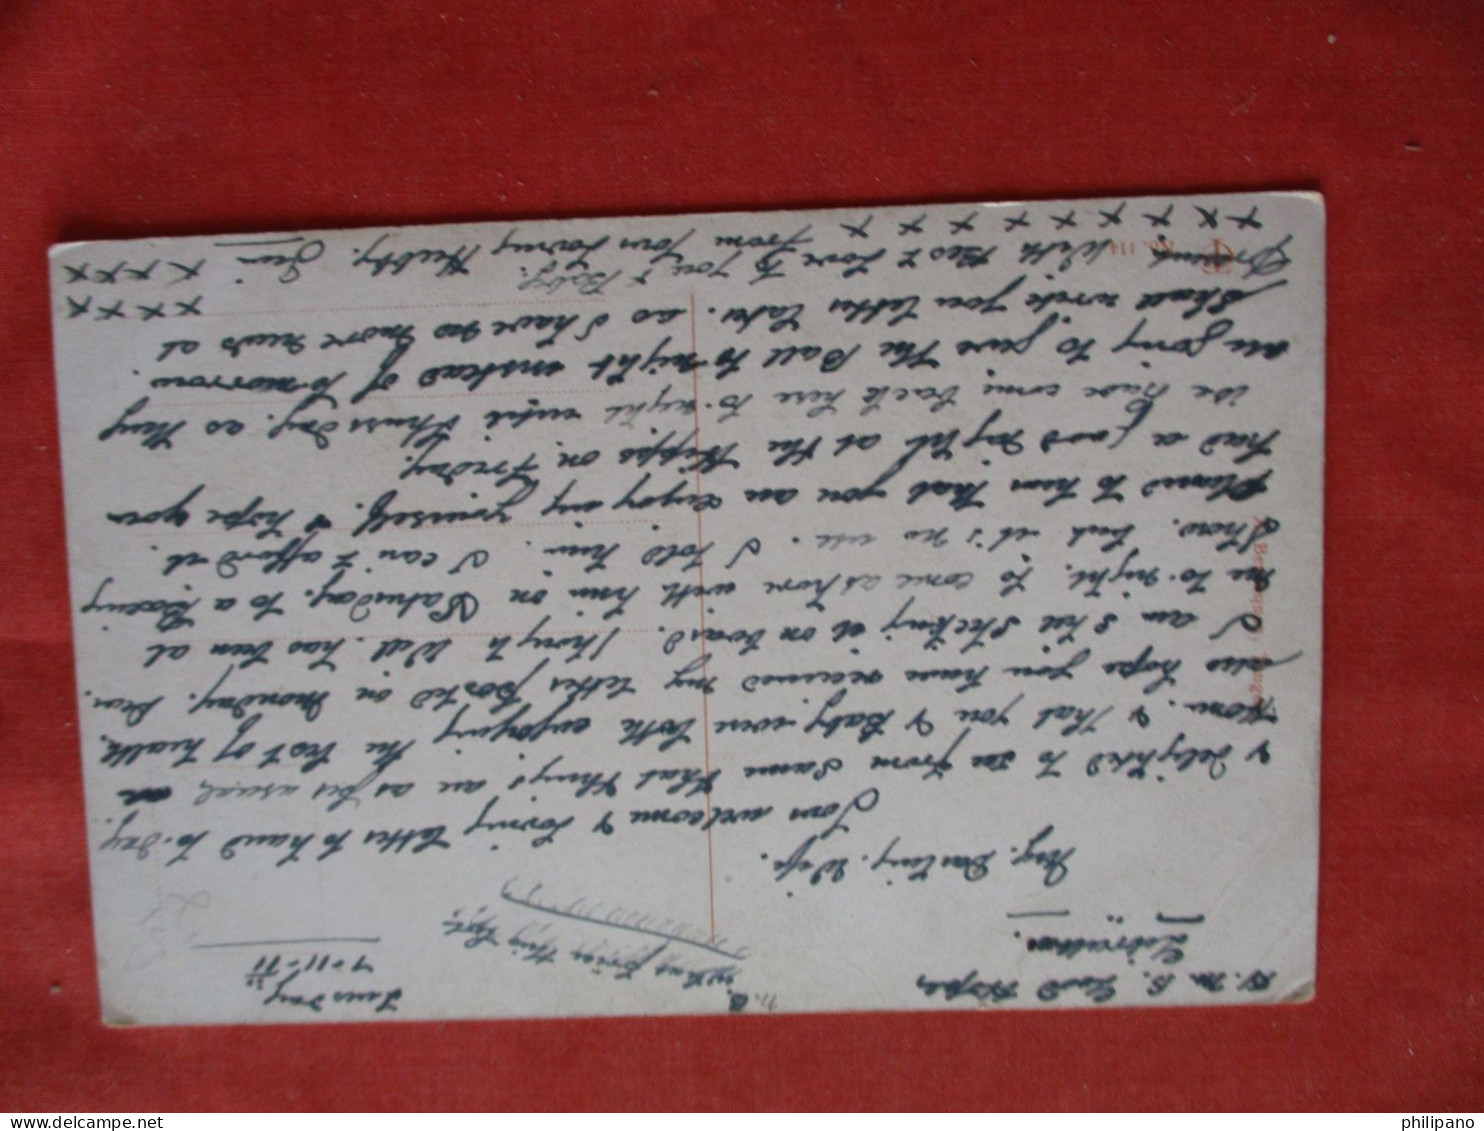 R. M. B. Lord
Tuesday
7-11-11
N.B.
My. Darling. Wife.
Your welcome & loving letter to hand to-day.
& delighted to see from same that things are as per usual at
Home. & that you & Baby were both enjoying the best of health.
also hope you have received my letter posted on Monday. Dear
I am still sticking it on board. though Will. has been at
me to-night. to come ashore with him on Saturday. to a Boxing
Show. but it's no use. I told him. I can't afford it.
Pleased to hear that you are enjoying yourself. & hope you
had a good night at the Hipps on Friday.
we have come back here to-night until Thursday. as they
are going to give the Ball to-night instead of to-morrow.
Shall write you letter later. as I have no more news at
Present With Best Love to you & Baby.
From Your Loving Hubby. Jim
x x x x x x x x x x x x
x x x x
No. 114
philipano